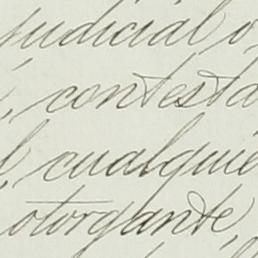 judicial o
, contesta
l cualquie
otorgante,